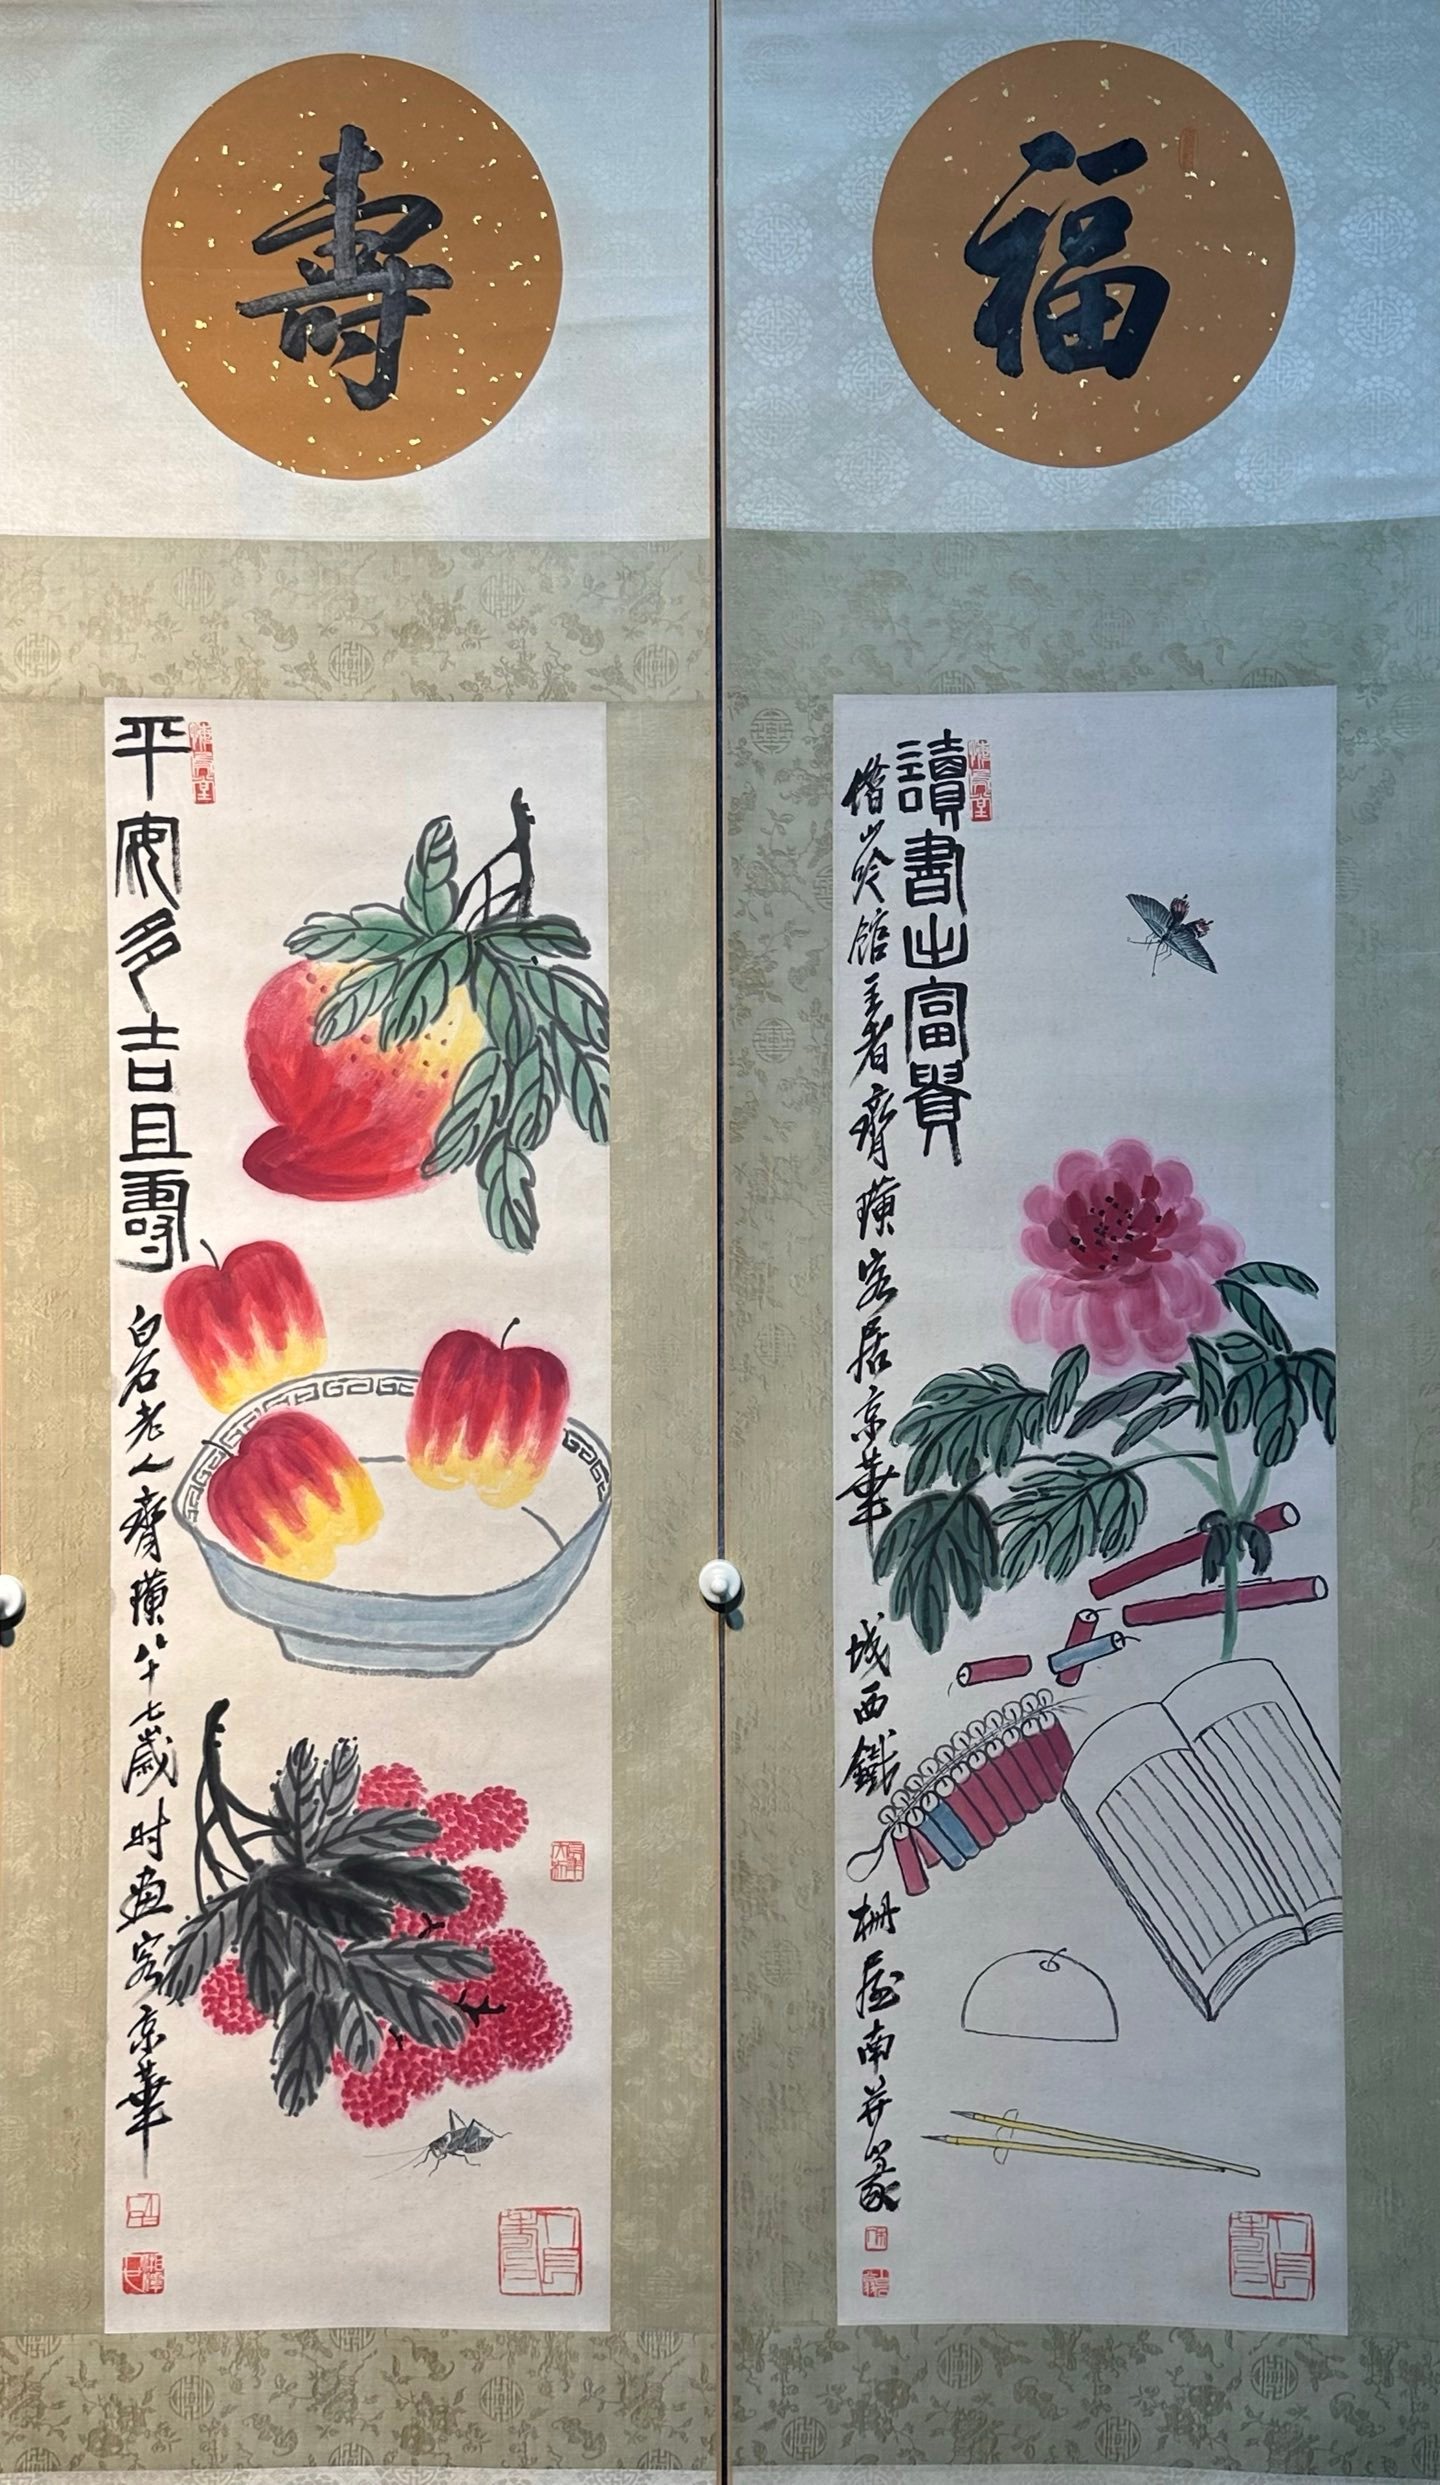 福
讀書出富貴
借山吟館主者齊璜客居京華城西鐵柵屋南并篆
壽
平安多吉且壽
白石老人齊璜八十七歲時畫客京華